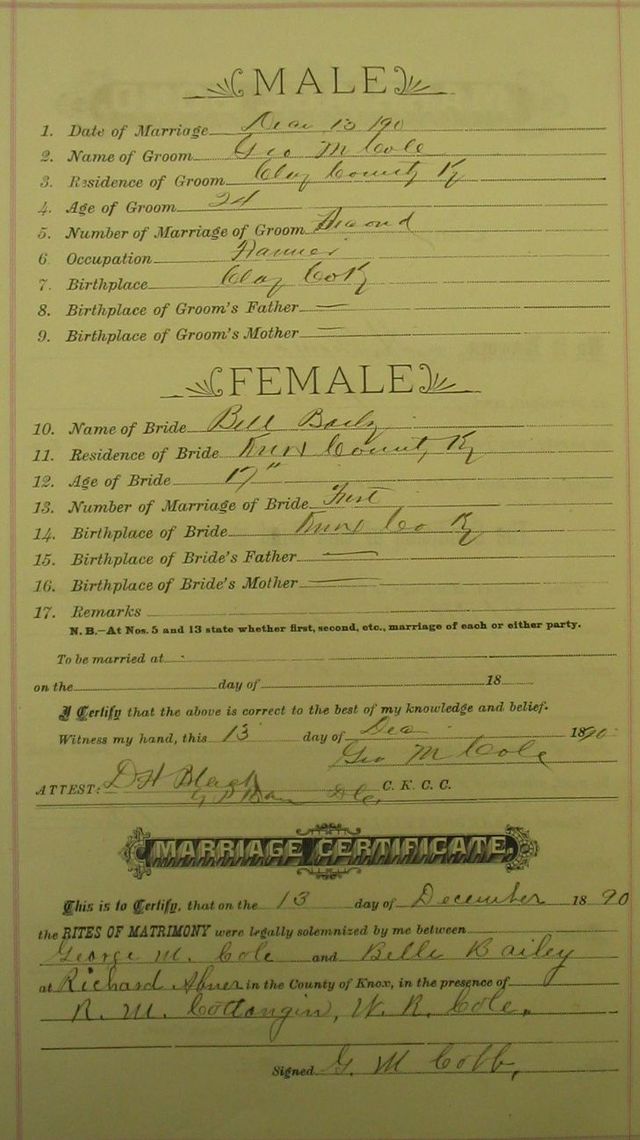 MALE
1. Date of Marriage Dec 13 190
2. Name of Groom Geo M Cole
3. Residence of Groom Clay County Ky
4. Age of Groom 24
5. Number of Marriage of Groom Second
6. Occupation Farmer
7. Birthplace Clay Co Ky
8. Birthplace of Groom's Father —
9. Birthplace of Groom's Mother —
FEMALE
10. Name of Bride Bell Baily
11. Residence of Bride Knox County Ky
12. Age of Bride 17"
13. Number of Marriage of Bride First
14. Birthplace of Bride Knox Co Ky
15. Birthplace of Bride's Father —
16. Birthplace of Bride's Mother —
17. Remarks
N. B.—At Nos. 5 and 13 state whether first, second, etc., marriage of each or either party.
To be married at
on the day of 18
I Certify that the above is correct to the best of my knowledge and belief.
Witness my hand, this 13 day of Dec 1890
Geo M Cole
ATTEST: D H Black C. K. C. C.
MARRIAGE CERTIFICATE.
This is to Certify, that on the 13 day of December 1890
the RITES OF MATRIMONY were legally solemnized by me between
George M. Cole and Belle Bailey
at Richard Abner in the County of Knox, in the presence of
R. M. Cottongin, W. R. Cole.
Signed G. M Cobb,